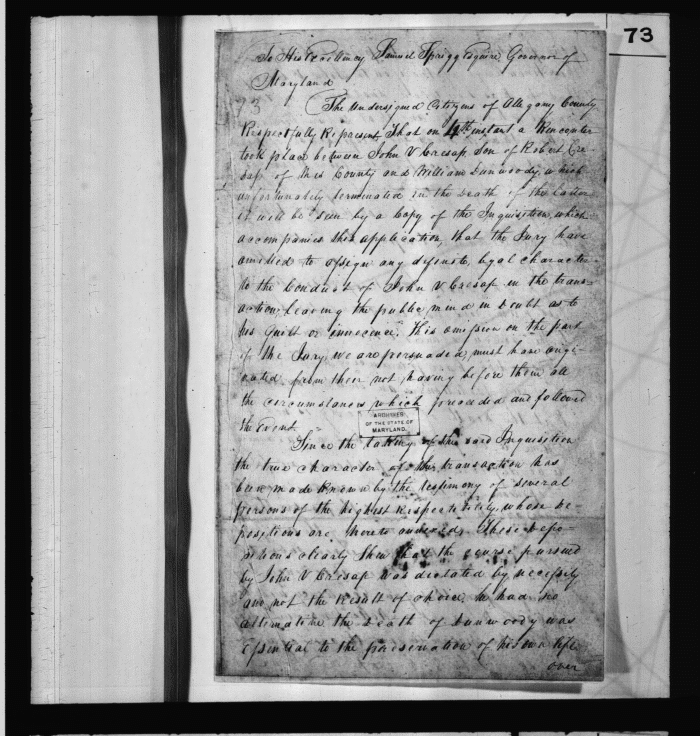 73
To His Excellency Samuel Sprigg Esquire Governor of
Maryland
73
The Undersigned Citizens of Allegany County
Respectfully Represent, That on 4th instant a Rencounter
took place between John V Cresap, Son of Robert Cre-
sap, of this County and William Dunwoody, which
unfortunately terminated in the Death of the latter
it will be seen by a Copy of the Inquisition, which
accompanies this application, that the Jury have
omitted to assign any definite, legal character
to the Conduct of John V Cresap in the trans-
action, leaving the public mind in doubt as to
his guilt or innocence. This omission on the part
of the Jury, we are persuaded, must have origi-
nated from their not having before them all
the circumstances which preceeded and followed
the event
ARCHIVES
OF THE STATE OF
MARYLAND.
Since the taking of the said Inquisition
the true character of this transaction has
been made known by the testimony of several
persons of the highest respectability, whose de-
positions are hereto annexed. These depo-
sitions clearly shew that the course pursued
by John V Cresap was dictated by necessity
and not the result of choice, he had no
alternative the death of Dunwoody was
essential to the preservation of his own life
over